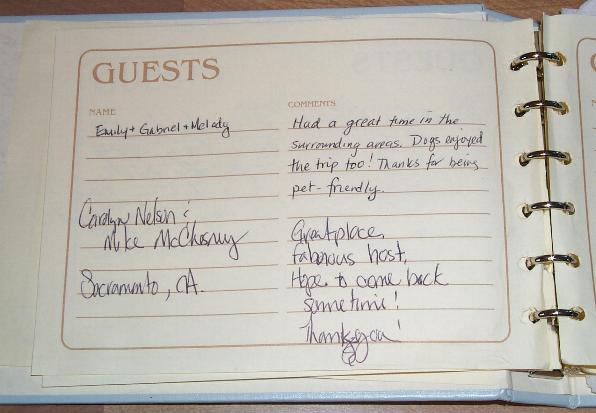 GUESTS
NAME
COMMENTS
Emily + Gabriel + Melady
Had a great time in the
surrounding areas. Dogs enjoyed
the trip too! Thanks for being
pet-friendly.
Carolyn Nelson &
Mike McChesney
Sacramento, CA.
Great place,
fabulous host,
Hope to come back
sometime!
Thank you!